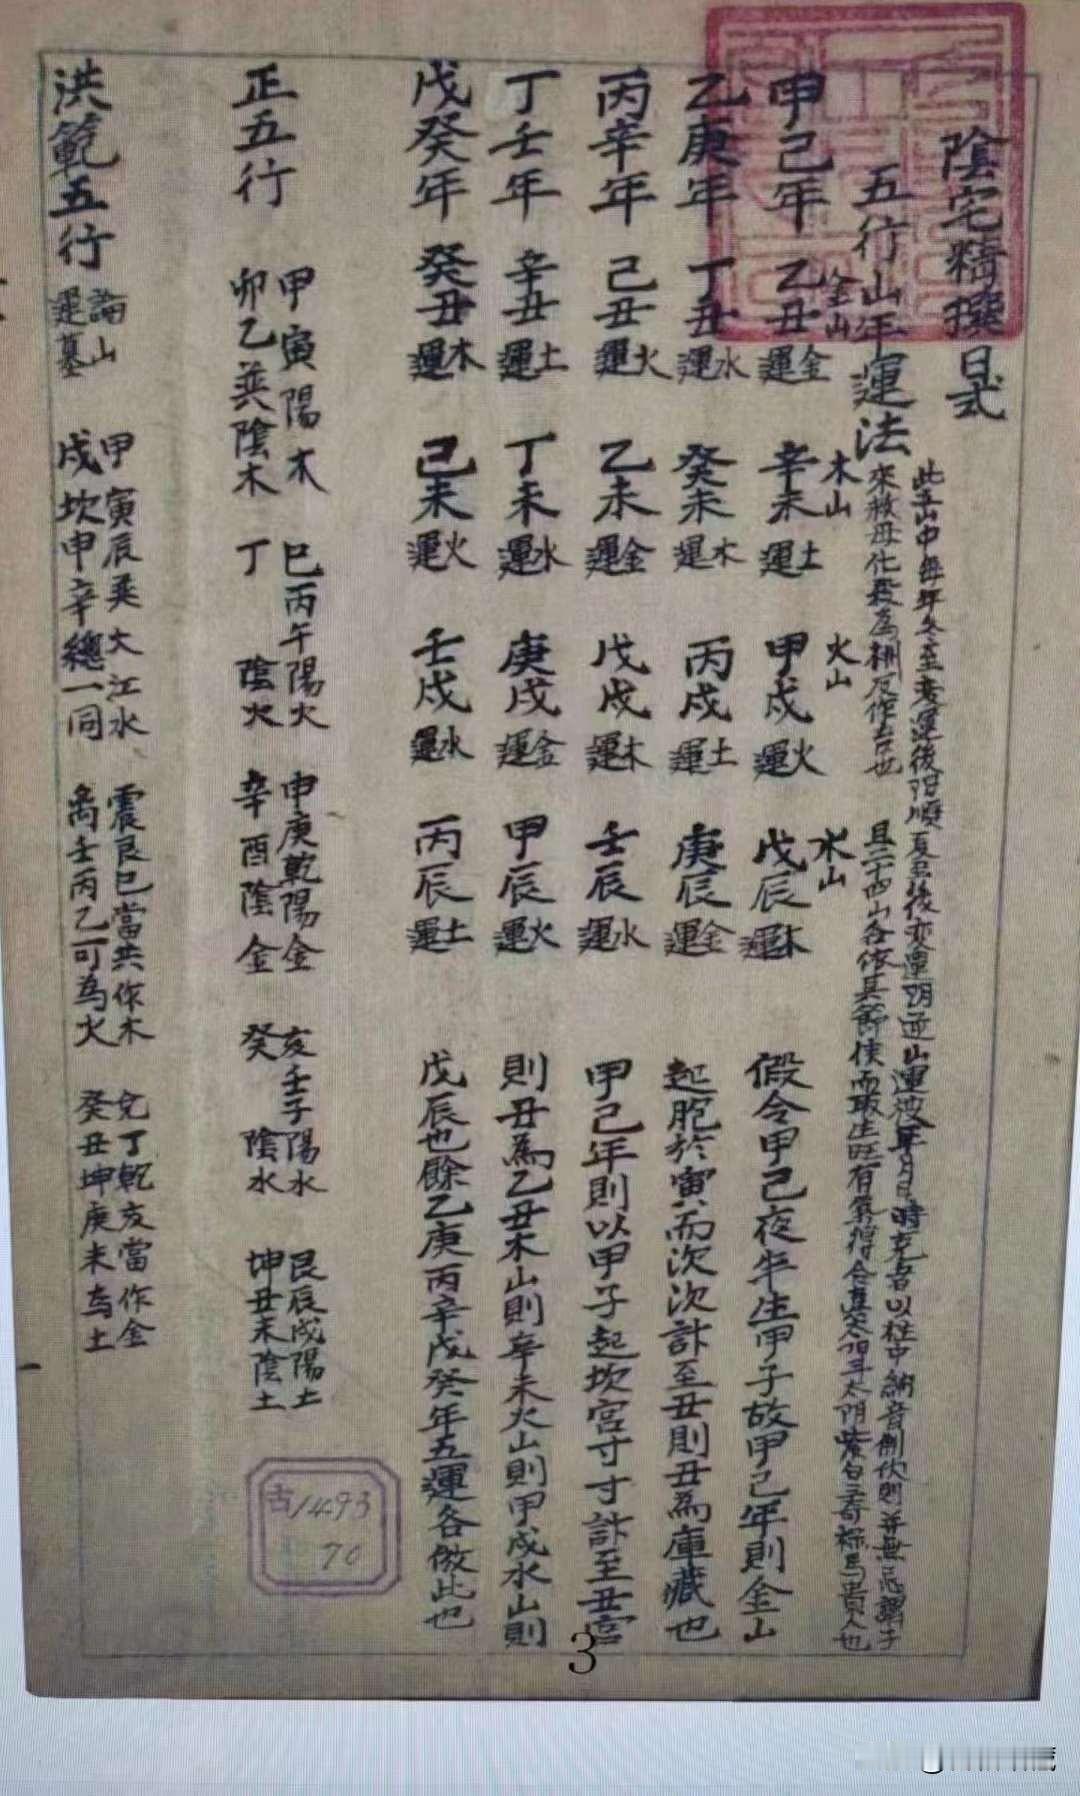 陰宅精撰日式
五行山年運法
此五山中每年冬至後
來救母化殺為權反作吉也
且二十四山各依其節候而取生旺有氣得合真太陽斗太陰紫白三奇祿馬貴人也
金山 木山 火山 水山
甲己年 乙丑金運 辛未土運 甲戌火運 戊辰木運 假令甲己夜半生甲子故甲己年則金山
乙庚年 丁丑水運 癸未木運 丙戌土運 庚辰金運 起胞於寅而次次計至丑則丑為庫藏也
丙辛年 己丑火運 乙未金運 戊戌木運 壬辰水運 甲己年則以甲子起坎宮寸寸計至丑宮
丁壬年 辛丑土運 丁未水運 庚戌金運 甲辰火運 則丑為乙丑木山則辛未火山則甲戌水山則
戊癸年 癸丑木運 己未火運 壬戌水運 丙辰土運 戊辰也餘乙庚丙辛戊癸年五運各倣此也
正五行 甲寅陽木 卯乙巽陰木 巳丙午陽火 丁陰火 申庚乾陽金 辛酉陰金 亥壬子陽水 癸陰水 艮辰戌陽土 坤丑未陰土
洪範五行 論山運墓 甲寅辰巽大江水 戌坎申辛總一同 震艮巳當共作木 离壬丙乙可為火 兌丁乾亥當作金 癸丑坤庚未為土
古1493
70
3